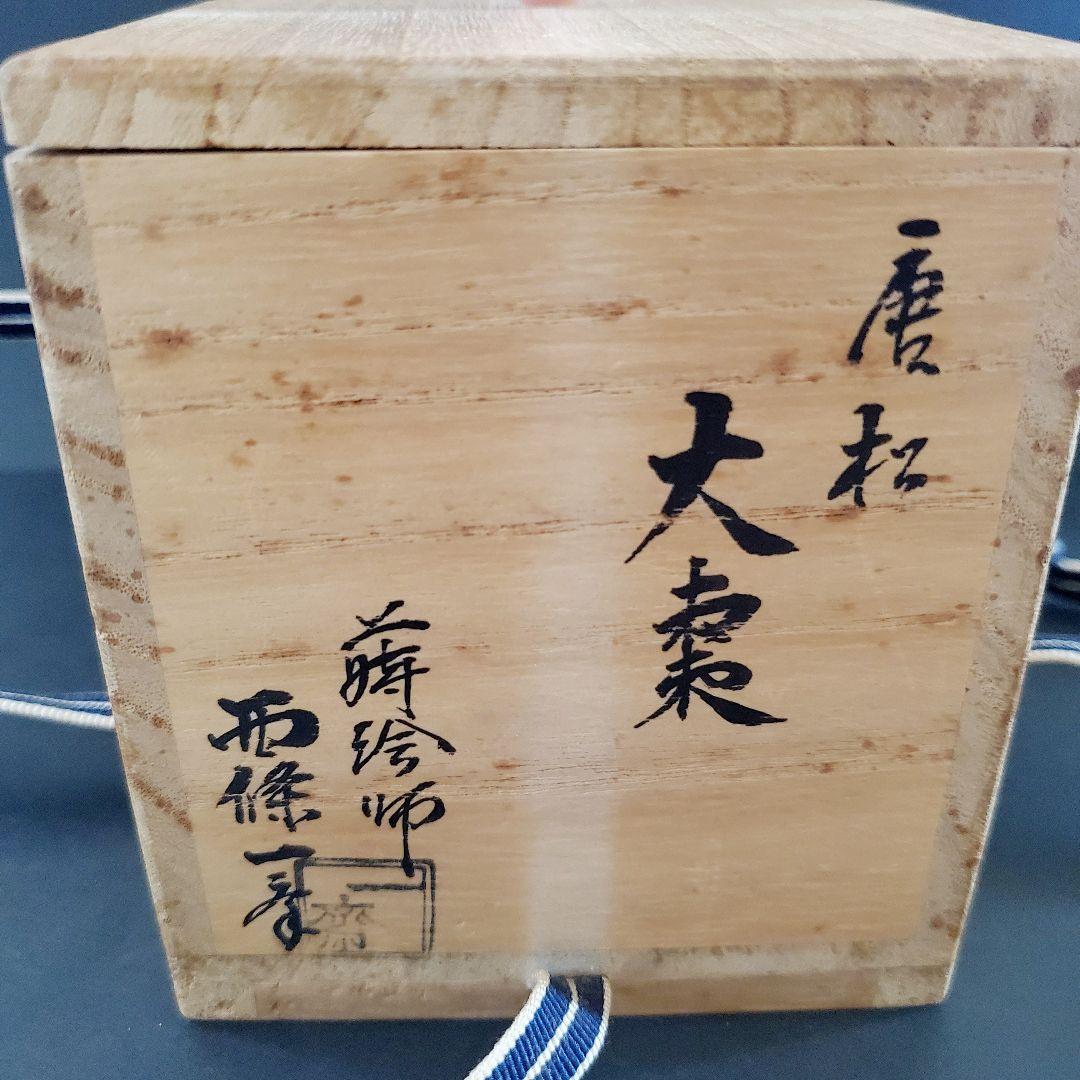 唐松
大棗
蒔絵師
西條一斎